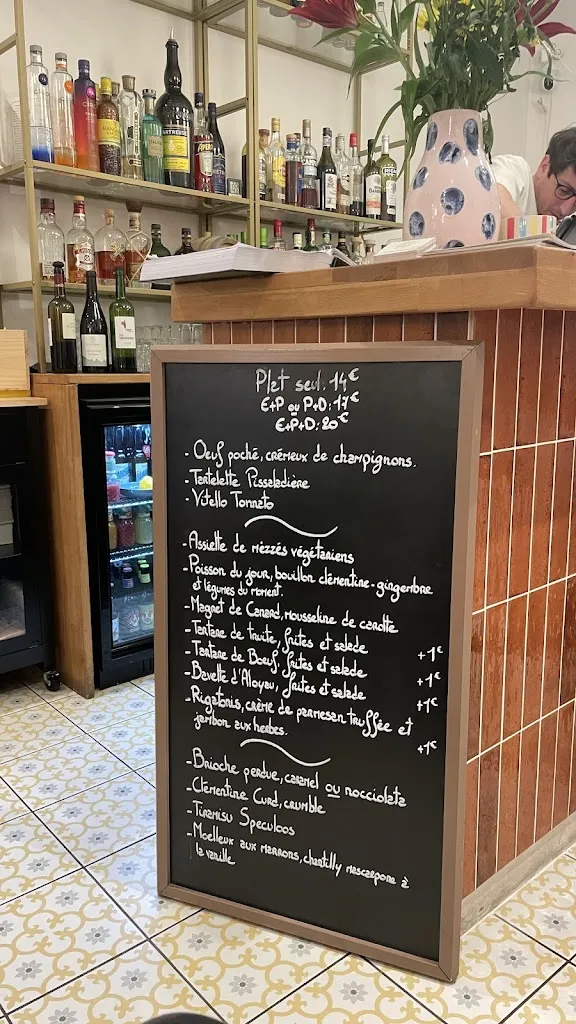 Plat seul. 14€
E+P ou P+D: 17€
E+P+D: 20€
- Oeuf poché, crémeux de champignons.
- Tartelette Pissaladière
- Vitello Tonnato
- Assiette de mezzés végétariens
- Poisson du jour, bouillon clémentine-gingembre
et légumes du moment.
- Magret de Canard, mousseline de carotte
- Tartare de truite, frites et salade +1€
- Tartare de Boeuf, frites et salade +1€
- Bavette d'Aloyau, frites et salade +1€
- Rigatonis, crème de parmesan truffée et
jambon aux herbes. +1€
- Brioche perdue, caramel ou nocciolata
- Clémentine Curd, crumble
- Tiramisu Speculoos
- Moelleux aux marrons, chantilly mascarpone à
la vanille